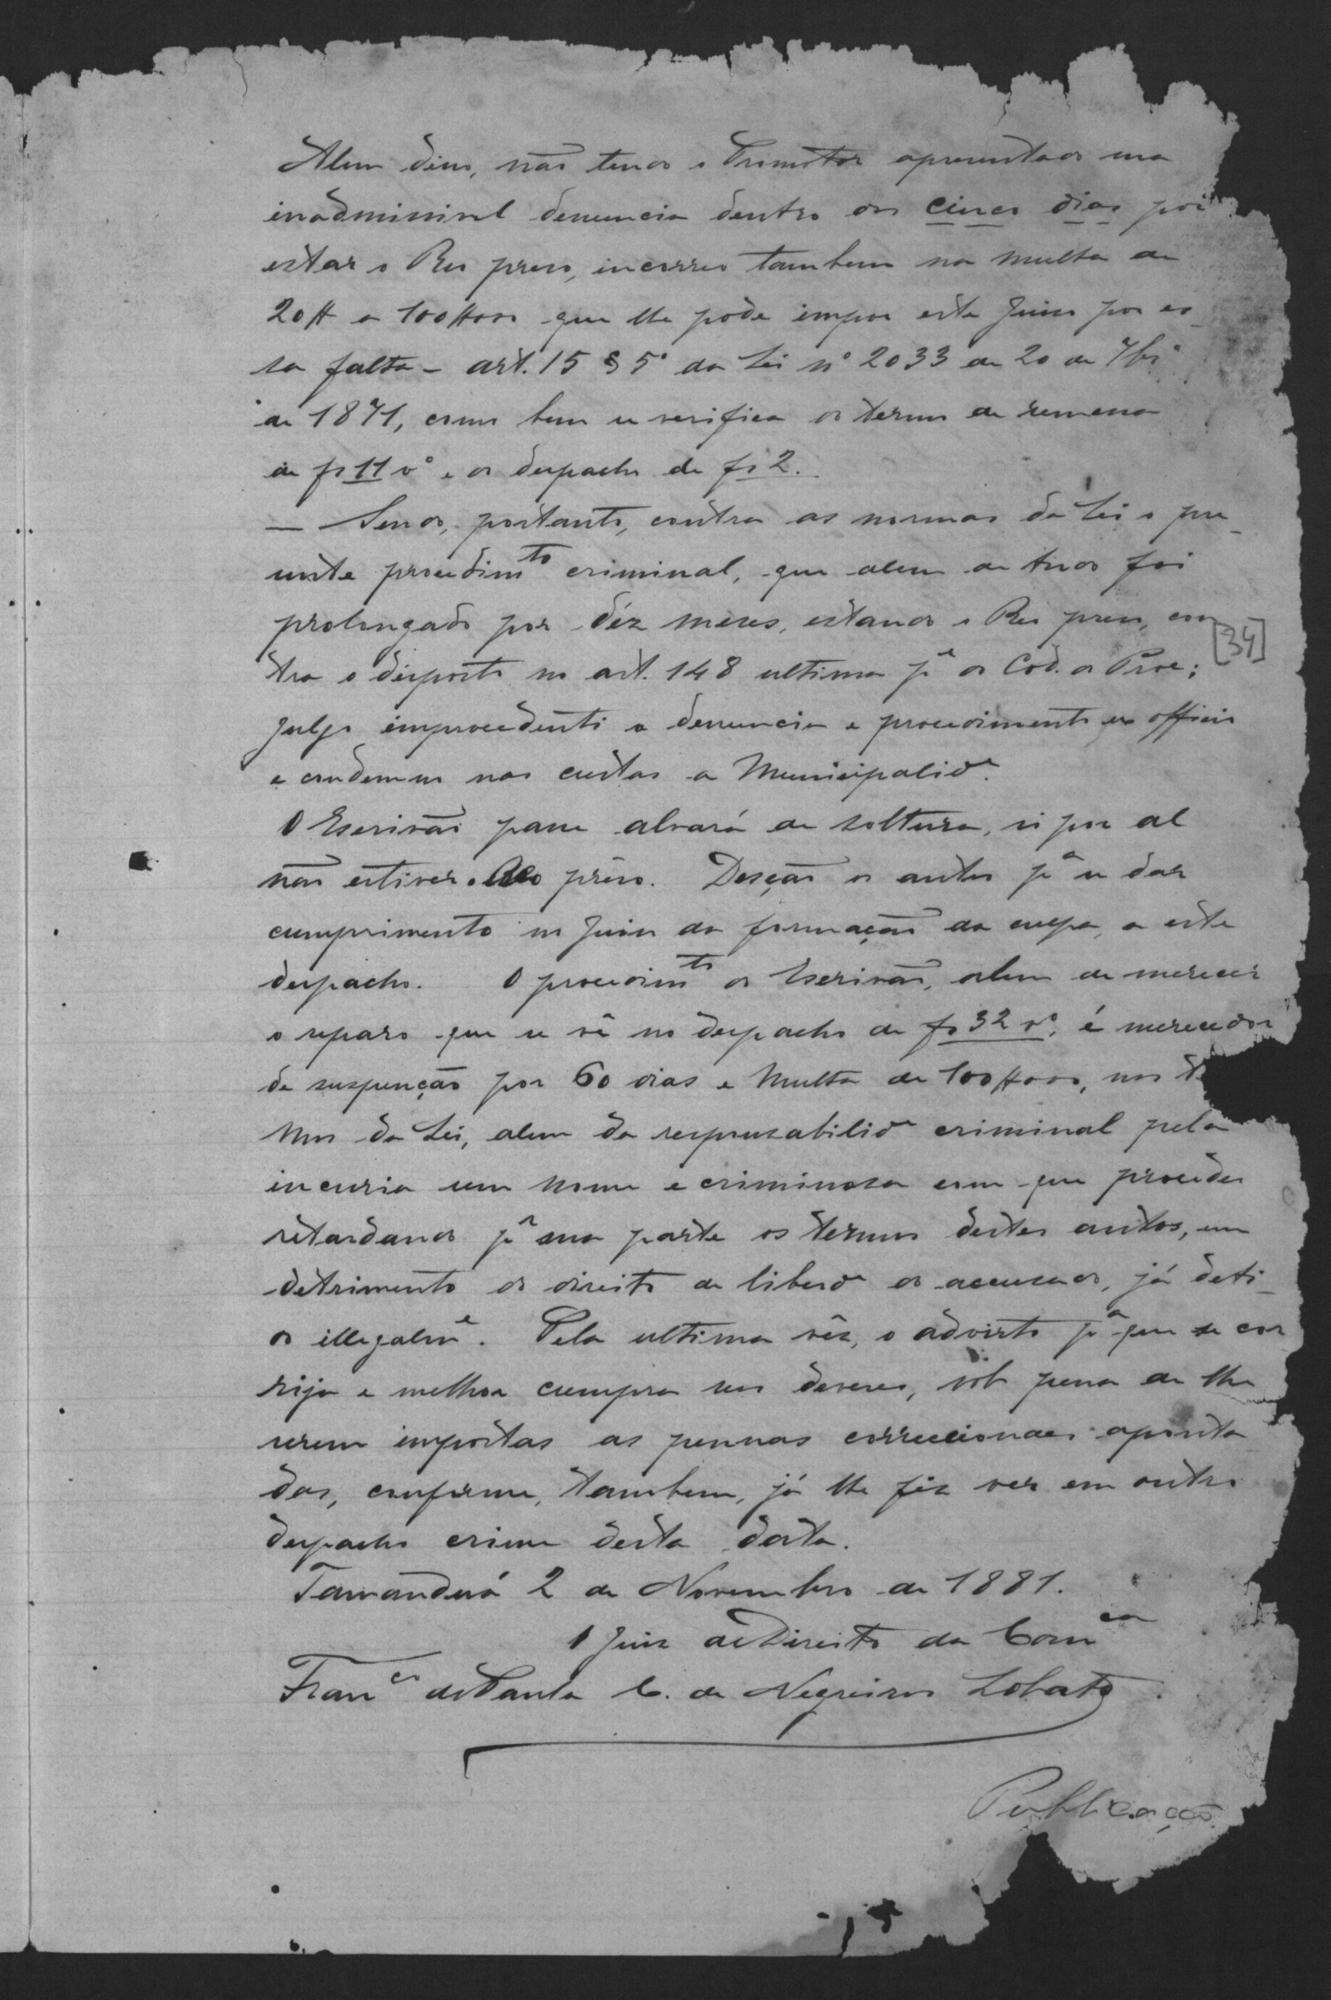 Alem disso, não tendo o Promotor apresentado sua
inadmissivel denuncia dentro dos cinco dias por
estar o Reo preso, incorreo tambem na multa de
20$ a 100$000 que lhe póde impor este Juiso por es-
sa falta - art. 15 § 5º da Lei nº 2033 de 20 de 7brº
de 1871, como bem se verifica do termo de remessa
de fs 11 vº e do despacho de fs 2.
— Sendo, portanto, contra as normas da Lei o pre-
sente procedimto criminal, que alem de tudo foi
prolongado por déz meses, estando o Reo preso, con
[34]
tra o disposto no art. 148 ultima pe do Cod. do Proc;
julgo improcedente a denuncia e procedimento ex officio
e condemno nas custas a Municipalide.
O Escrivão passe alvará de soltura, si por al
não estiver o Reo prêso. Desção os autos pa se dar
cumprimento no Juiso da formação da culpa, a este
despacho. O procedimto do Escrivão, alem de merecer
o reparo que se vê no despacho de fs 32 vº, é merecedor
de suspenção por 60 dias e multa de 100$000, nos te
mos da Lei, alem da responsabilide criminal pela
incuria sem nome e criminosa com que procedeo
retardando pr sua parte os termos destes autos, em
detrimento do direito de liberde do accusado, já deti-
do illegalme. Pela ultima vêz, o advirto pa que se cor
rija e melhor cumpra seus deveres, sob pena de lhe
serem impostas as pennas correccionaes aponta
das, conforme, tambem, já lhe fiz ver em outro
despacho crime desta data.
Tamanduá 2 de Novembro de 1881.
O Juiz de Direito da Comca
Franco de Paula C. de Negreiros Lobato
Publicação